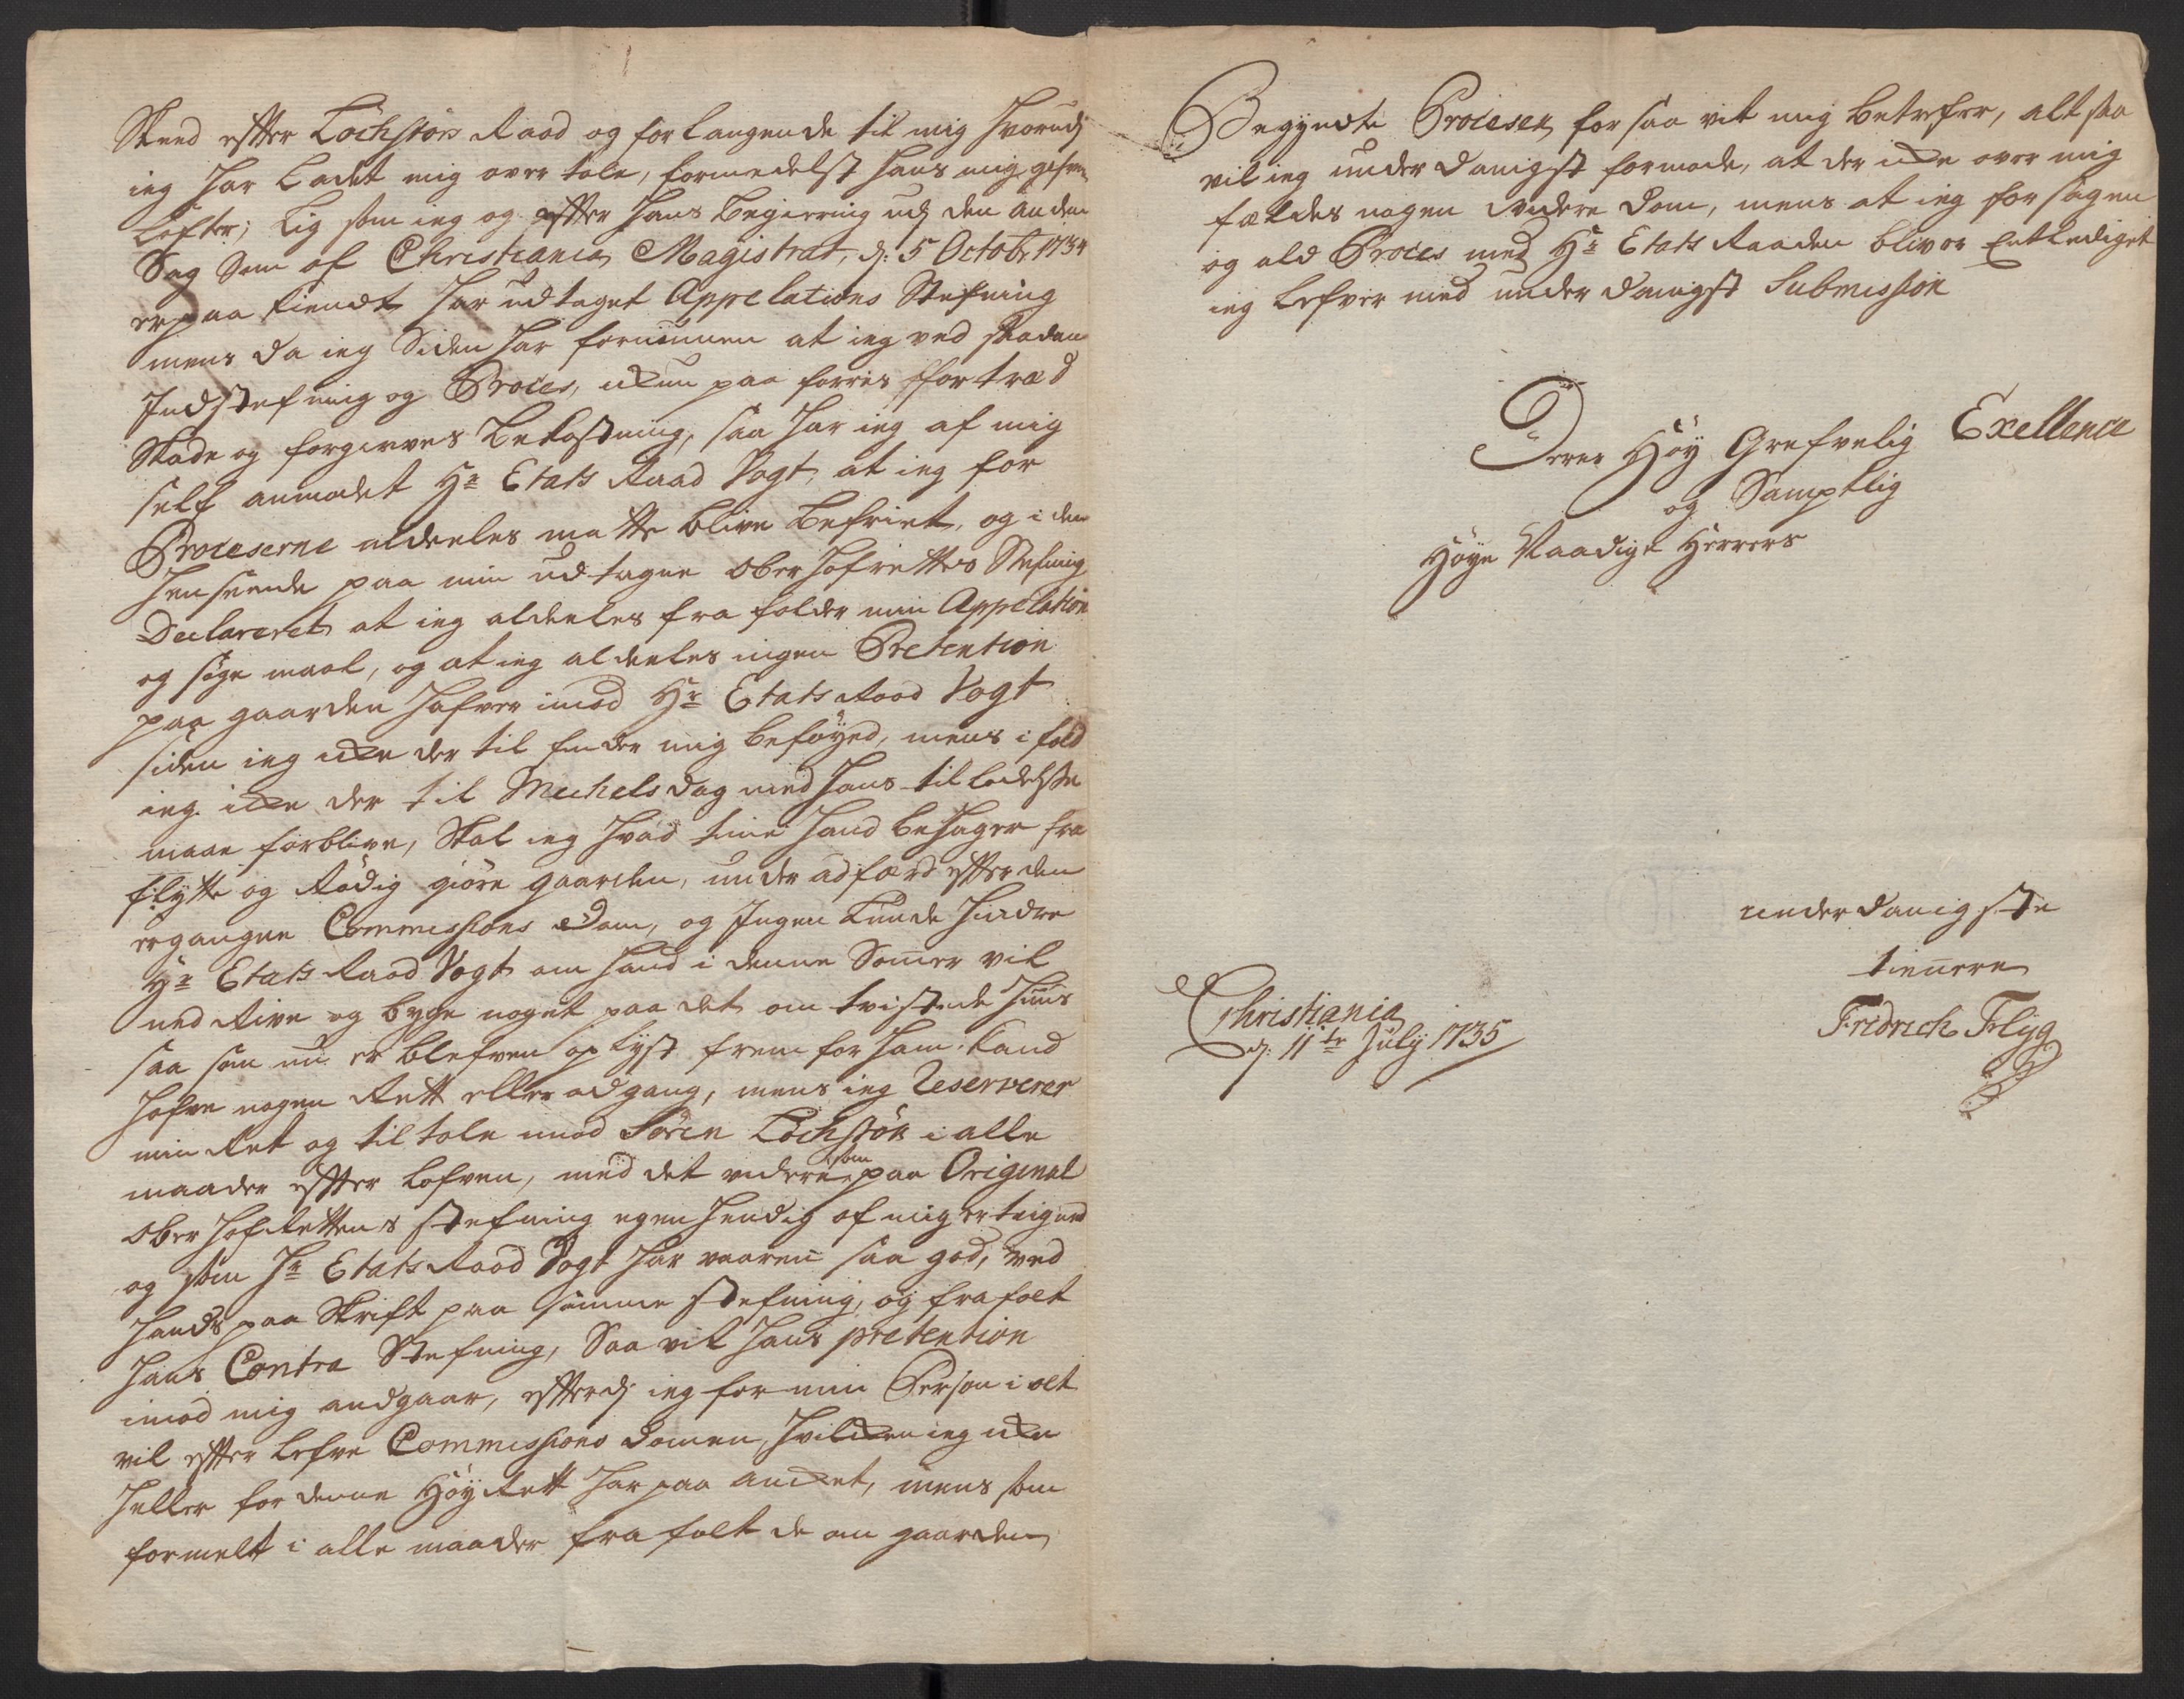 Skeed efter Löchstörs Raad og forlangende til mig hvorudj
ieg har ladet mig over tale, formedelst hans mig gifne
löfter; lig som ieg og efter hans begiering udj den anden
Sag Som af Christiania Magistrat, d: 5 Octobr 1734
er paa kiendt har udtaget Appelations Stefning
mens da ieg Siden har fornummen at ieg ved saadan
Indstefning og Proces, ickun paa förres fortræd
Skade og forgieves bekostning, saa har ieg af mig
self anmodet Hr Etats Raad Vogt, at ieg for
Proceserne aldeeles matte blive befriet, og i den
henseende paa min udtagne Oberhofrettes Stefning
Declareret at ieg aldeeles fra falder min Appelation
og söge maal, og at ieg aldeeles ingen Pretention
paa gaarden hafver imod Hr Etats Raad Vogt
siden ieg icke der til finder mig beföyed, mens i fald
ieg icke der til Michelsdag med hans tilladelse
maae forblive, Skal ieg hvad time hand behager fra
flytte og Rödig giöre gaarden, under adfærd efter den
ergangne Commissions Dom, og Ingen kunde hindre
Hr Etats Raad Vogt om hand i denne Sommer vil
ned Rive og bygge noget paa det om tvistede huus
saa som nu er blefven op lyst frem for ham kand
hafve nogen Rett eller adgang, mens ieg Reserverer
min Ret og tiltale imod Sören Löchstör i alle
maader efter lofven, med det videre som paa Original
Oberhof Rettens stefning egenhendig af mig er teignet
og som Hr Etats Raad Vogt har vaaren saa god, ved
hands paa Skrift paa samme stefning, og frafalt
hans Contra Stefning, Saa vit hans pretention
imod mig andgaar, efterdj ieg for min Person i alt
vil efter lefve Commissions Domen, hvilken ieg icke
heller for denne Höy Rett har paa ancket, mens som
formelt i alle maader fra falt de om gaarden
Begyndte Procesen, for saa vit mig betrefer, alt saa
vil ieg under danigst formode, at der icke over mig
fældes nogen videre Dom, mens at ieg for sagen
og ald Proces med Hr Etats Raaden bliver Entlediget
ieg lefver med underdanigst Submission
Deres Höy Grefvelig Exellence
og Samptlig
Höye Naadige Herrers
underdanigste
tiennere
Christiania
d: 11te July 1735
Fridrich Flyg